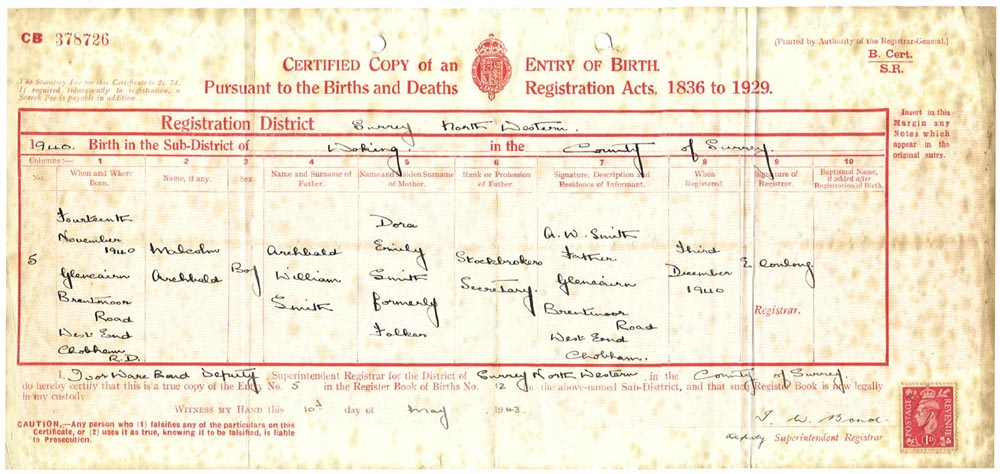 CB 378726
[Printed by Authority of the Registrar-General.]
B. Cert.
S.R.
The Statutory Fee for this Certificate is 2s. 7d.
If required subsequently to registration, a
Search Fee is payable in addition.
CERTIFIED COPY of an ENTRY OF BIRTH.
Pursuant to the Births and Deaths Registration Acts, 1836 to 1929.
Registration District Surrey North Western.
1940. Birth in the Sub-District of Woking. in the County of Surrey.
Insert in this
Margin any
Notes which
appear in the
original entry.
Columns :— 1 2 3 4 5 6 7 8 9 10
No.
When and Where
Born.
Name, if any.
Sex.
Name and Surname of
Father.
Name and Maiden Surname
of Mother.
Rank or Profession
of Father.
Signature, Description and
Residence of Informant.
When
Registered.
Signature of
Registrar.
Baptismal Name,
if added after
Registration of Birth.
5
Fourteenth
November
1940
Glencairn
Brentmoor
Road
West End
Chobham
R.D.
Malcolm
Archbald
Boy
Archbald
William
Smith
Dora
Emily
Smith
formerly
Stockbrokers
Secretary.
A. W. Smith
Father
Glencairn
Brentmoor
Road
West End
Chobham.
Third
December
1940
Registrar.
I, Ivor Ware Bond Deputy Superintendent Registrar for the District of Surrey North Western, in the County of Surrey.
do hereby certify that this is a true copy of the Entry No. 5 in the Register Book of Births No. 12 in the above-named Sub-District, and that such Register Book is now legally
in my custody.
WITNESS MY HAND this 10th day of May, 1943.
CAUTION.—Any person who (1) falsifies any of the particulars on this
Certificate, or (2) uses it as true, knowing it to be falsified, is liable
to Prosecution.
I. W. Bond
Deputy Superintendent Registrar
POSTAGE
REVENUE
1D